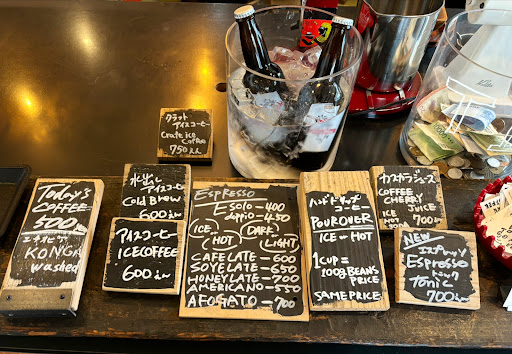 クラット
アイスコーヒー
Crate ice
Coffee
750
Today's
COFFEE
500
エチオピア
KONGA
washed
水出し
アイスコーヒー
Cold Brew
600
アイスコーヒー
ICE COFFEE
600
ESPRESSO
solo-400
doppio-450
(ICE) (DARK)
(HOT) (LIGHT)
CAFE LATE-600
SOYE LATE-650
HONEY LATE-700
AMERICANO-550
AFOGATO-700
ハンドドリップ
POUROVER
ICE or HOT
1CUP=
100g BEANS
PRICE
SAME PRICE
カスカラジュース
COFFEE
CHERRY
JUICE
ICE
HOT 700
NEW
エスプレッソ
トニック
Espresso
Tonic
700